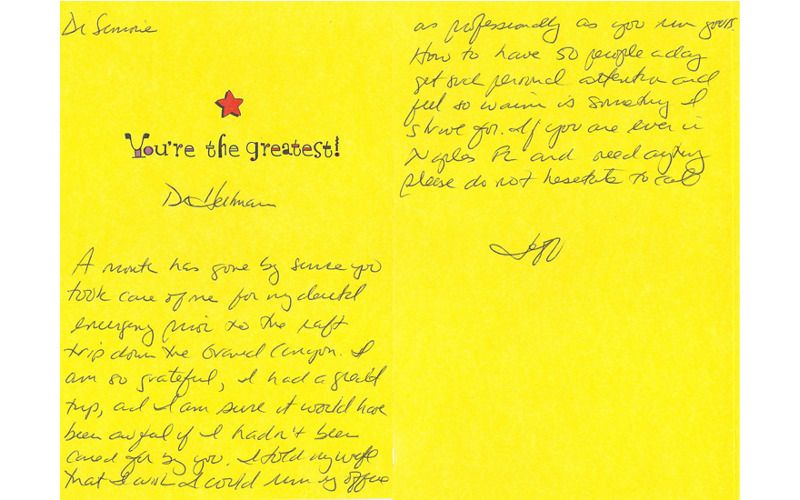 Dr Simone
You're the greatest!
Dr
A month has gone by since you
took care of me for my dental
emergency prior to the raft
trip down the Grand Canyon. I
am so grateful, I had a great
trip, and I am sure it would have
been awful if I hadn't been
cared for by you. I told my wife
that I wish I could run my office
as professionally as you run yours.
How to have 50 people a day
get such personal attention and
feel so warm is something I
strive for. If you are ever in
Naples FL and need anything
please do not hesetate to call